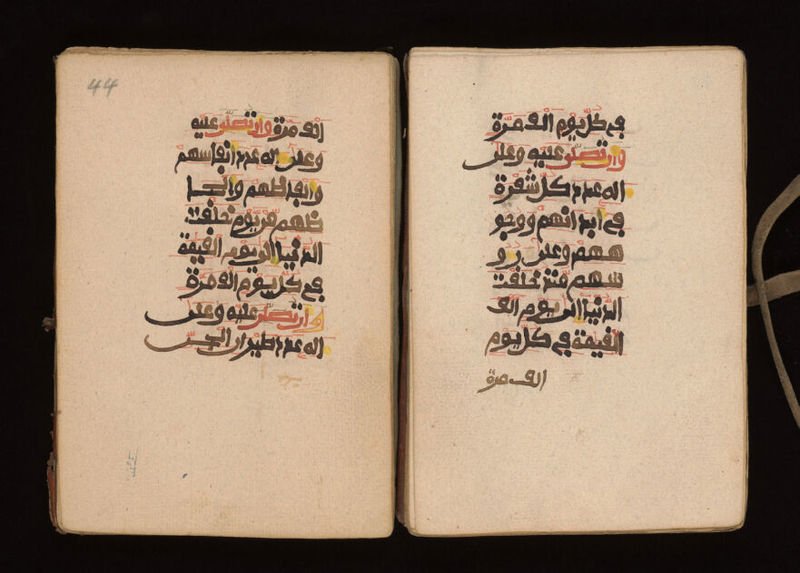 في كل يوم الف مرة
وان تصلي عليه وعلى
اله عدد كل شعرة
في ابدانهم ووجو
ههم وعلى رءو
سهم منذ خلقت
الدنيا الى يوم الق
القيمة في كل يوم
الف مرة
44
الف مرة وان تصلي عليه
وعلى اله عدد انفاسهم
والفاظهم والحا
ظهم من يوم خلقت
الدنيا الى يوم القيمة
في كل يوم الف مرة
وان تصلي عليه وعلى
اله عدد طيران الجن